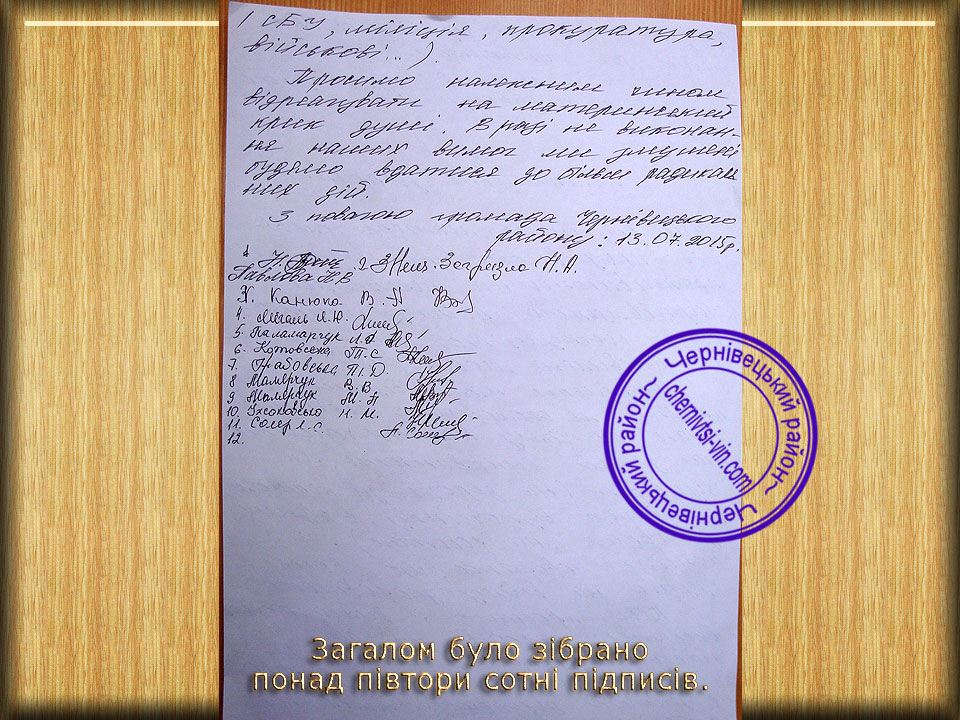 ( СБУ, міліція, прокуратура,
військові...).
Просимо належним чином
відреагувати на материнський
крик душі. В разі не виконан-
ня наших вимог ми змушені
будемо вдатися до більш радикаль
них дій.
З повагою громада Чернівецького
району: 13.07.2015р.
1 Н.
Павлова Н В
2 Загризла Н.А.
3. Канюка В. П
4. Мигаль Л.Ю.
5. Паламарчук Л.А
6. Котовська Т.С
7. Грабовська П.Д.
8 Мамерчук В.В.
9 Мамерчук М. П
10. Н. М.
11. С.
12.
Чернівецький район~ Чернівецький район~
chernivtsi-vin.com
Загалом було зібрано
понад півтори сотні підписів.